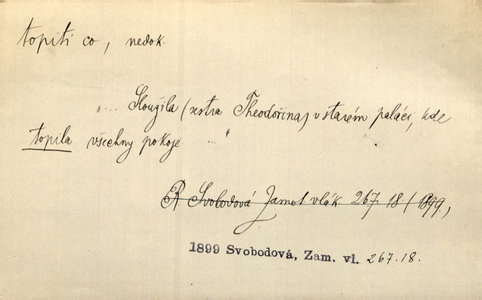 topiti co, nedok.
„... Sloužila (sestra Theodořina) v starém paláci, kde
topila všechny pokoje "
R Svobodová Zamotl. vlák 267. 18 / 1899,
1899 Svobodová, Zam. vl. 267.18.